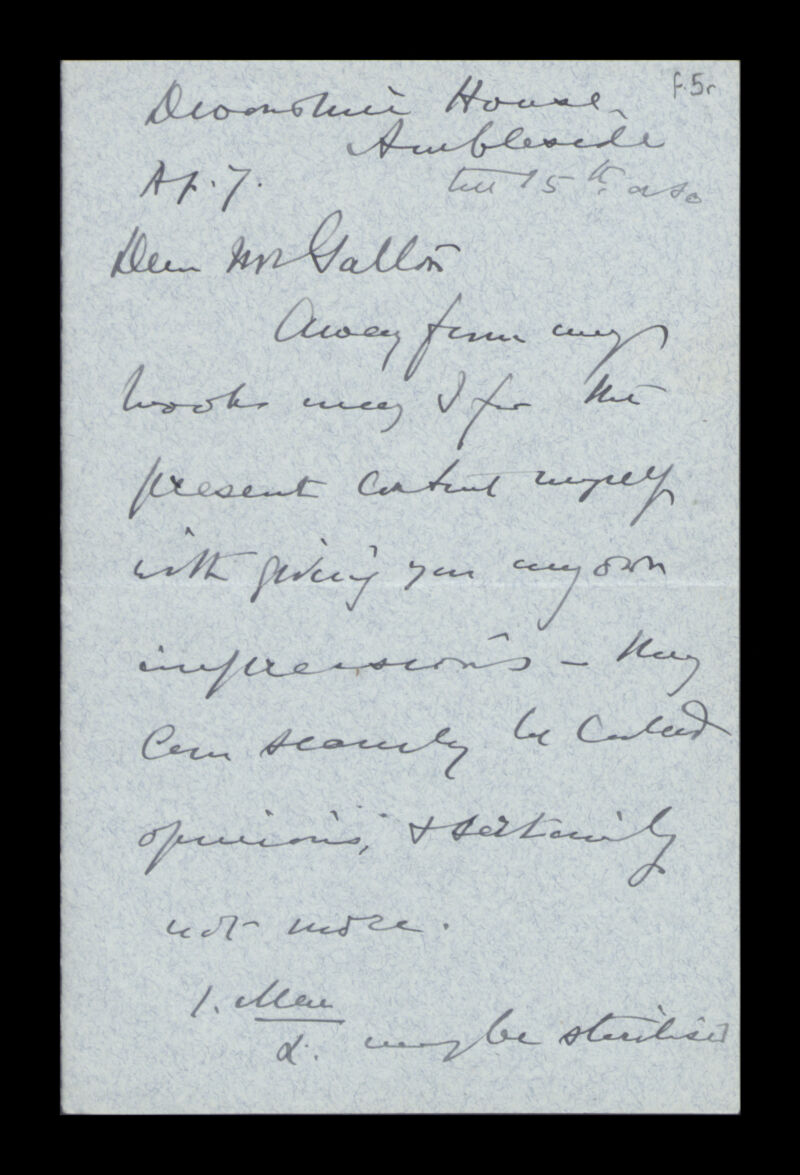 f.5r
Devonshire House,
Ambleside
Ap. 7. till 15th. or so
Dear Mr Galton
Away from my
books may I for the
present content myself
with giving you my own
impressions – they
can scarcely be called
opinions, & certainly
not more.
1. Men
α. may be sterilised